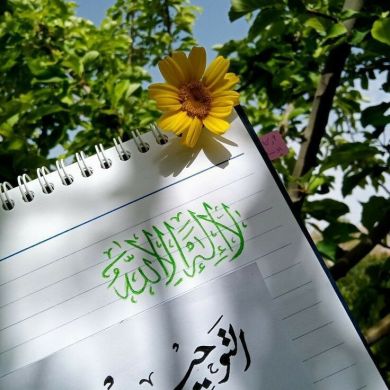 لا إله إلا الله
التوحيد